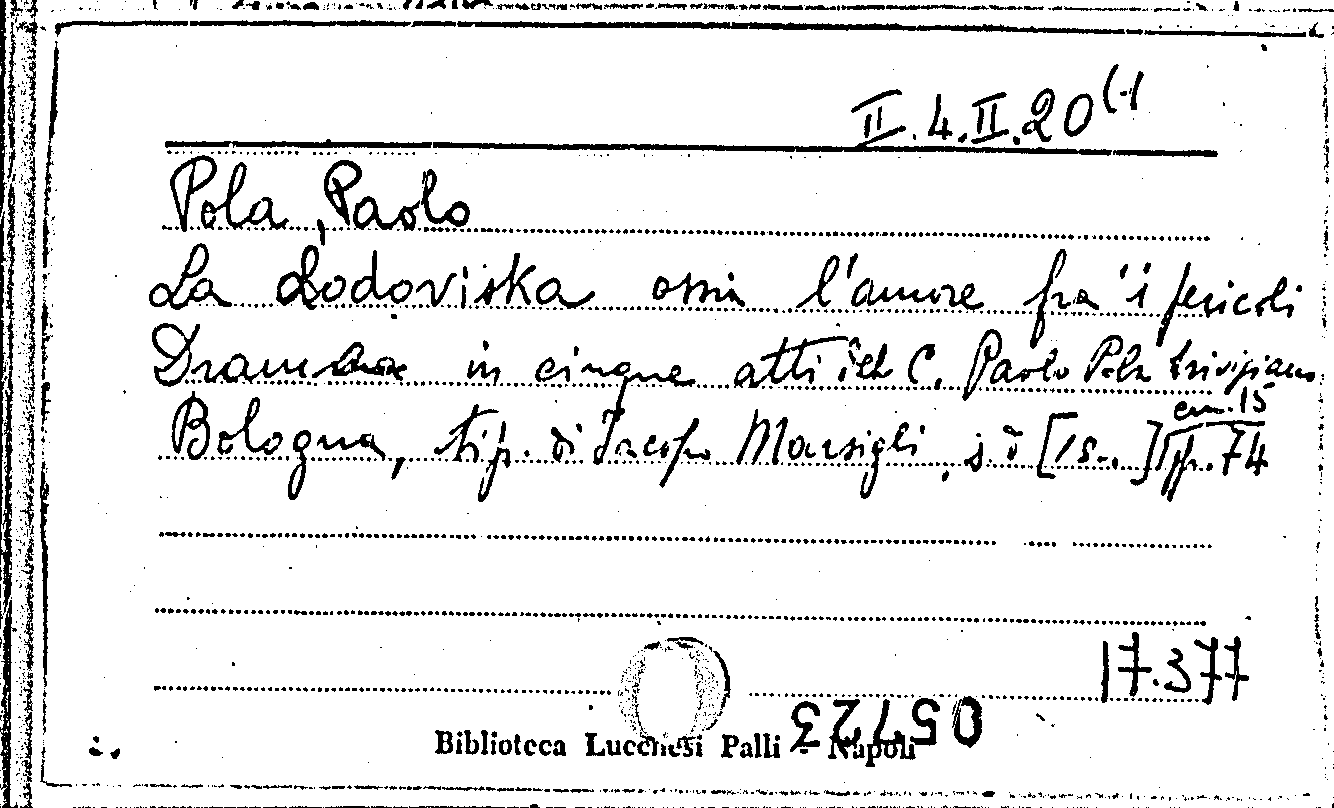 II.4.II.20(-)
Pola, Paolo
La Lodoviska ossia l'amore fra i pericoli
Dramma in cinque atti del C. Paolo Pola trivigiano
Bologna, tip. di Jacopo Marsigli, s d [18..] pp. 74
cm. 15
17.377
05723
Biblioteca Lucchesi Palli - Napoli